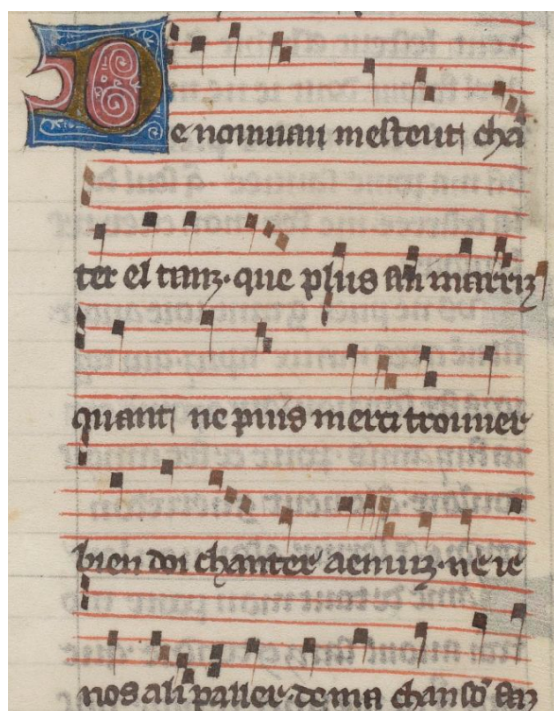 De nouuiau mesteut cha
ter el tanz · que plus sui marriz
quant ne puis merci trouuer
bien doi chanter a enuiz · ne ie
nos a li paller · de ma chansõ faz